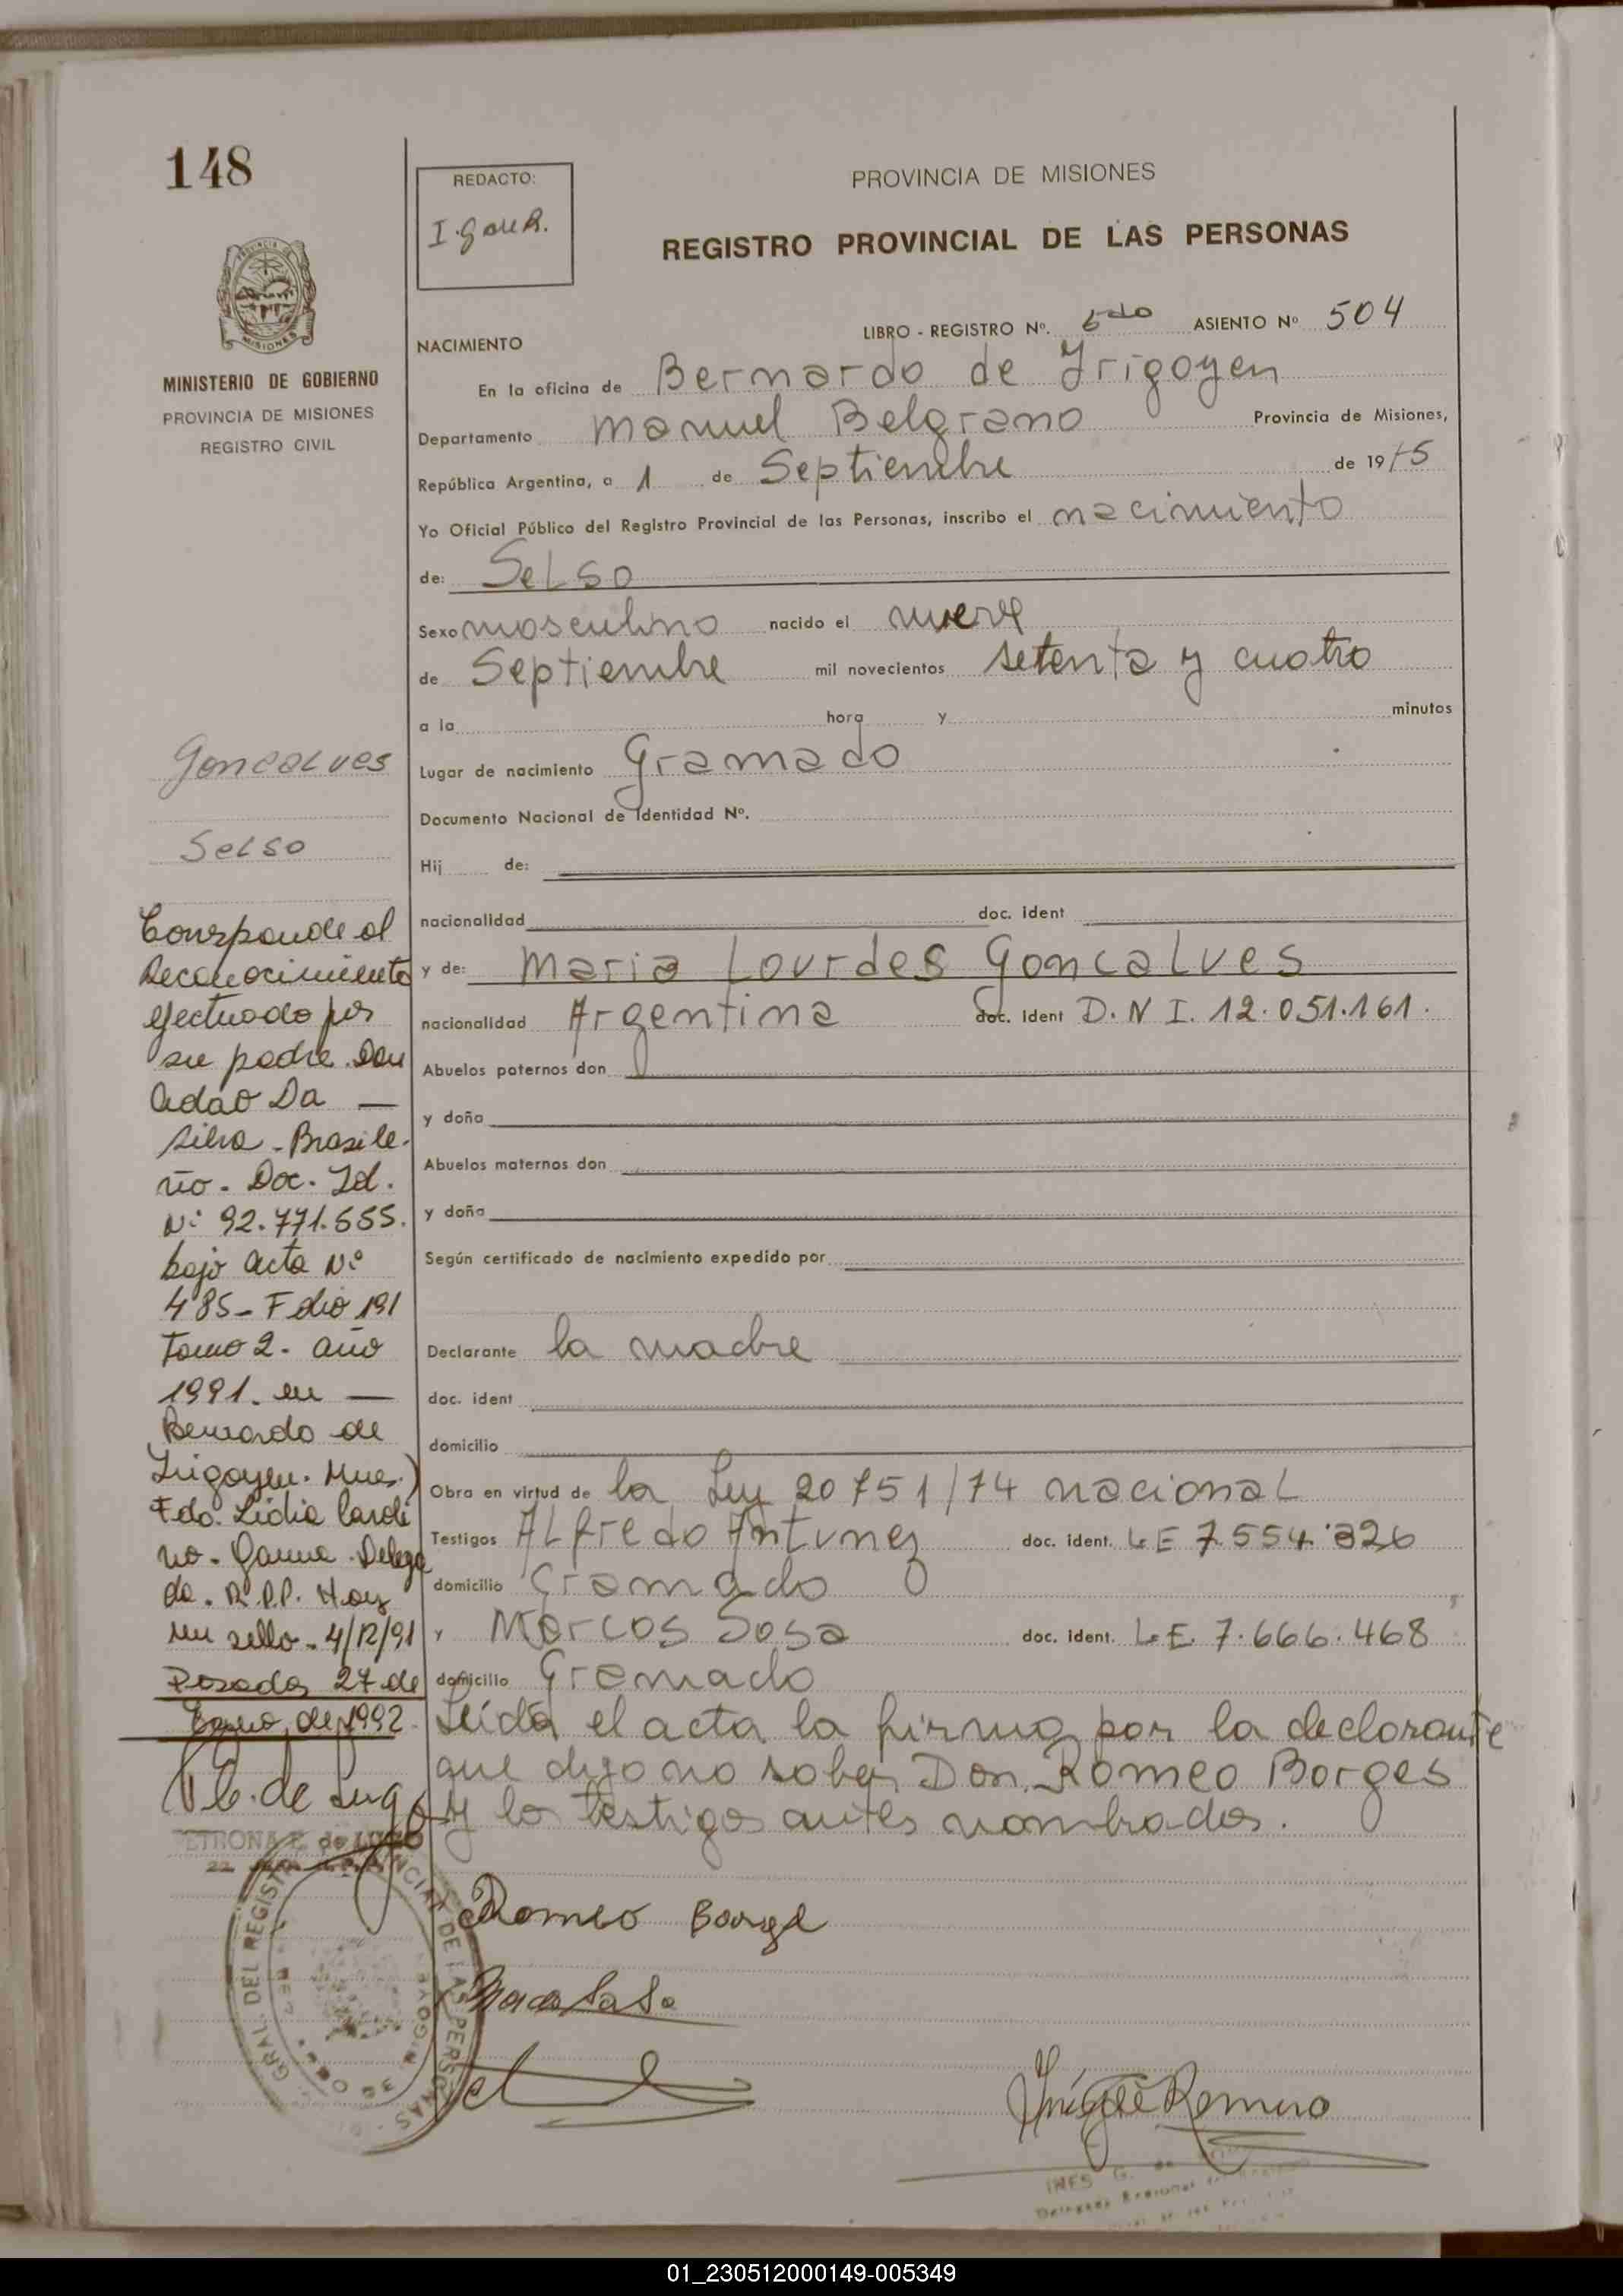 148
REDACTO:
I. g de R.
PROVINCIA DE MISIONES
REGISTRO PROVINCIAL DE LAS PERSONAS
MISIONES
MINISTERIO DE GOBIERNO
PROVINCIA DE MISIONES
REGISTRO CIVIL
NACIMIENTO
LIBRO - REGISTRO Nº. ASIENTO Nº 504
En la oficina de Bernardo de Irigoyen
Departamento Manuel Belgrano Provincia de Misiones,
República Argentina, a 1 de Septiembre de 1975
Yo Oficial Público del Registro Provincial de las Personas, inscribo el nacimiento
de: Selso
Sexo masculino nacido el nueve
de Septiembre mil novecientos setenta y cuatro
a la hora y minutos
Lugar de nacimiento Gramado
Documento Nacional de Identidad Nº.
Hij de:
nacionalidad doc. ident
y de: Maria Lourdes Goncalves
nacionalidad Argentina doc. ident D.N I. 12.051.161.
Abuelos paternos don
y doña
Abuelos maternos don
y doña
Según certificado de nacimiento expedido por
Declarante la madre
doc. ident
domicilio
Obra en virtud de la Ley 20751/74 nacional
Testigos Alfredo Antunez doc. ident. LE 7.554.326
domicilio Gramado
y Marcos Sosa doc. ident. LE 7.666.468
domicilio Gramado
Leída el acta la firma por la declarante
que dijo no saber Don Romeo Borges
y los testigos antes nombrados.
Goncalves
Selso
Corresponde al
Reconocimiento
efectuado por
su padre Don
Adao Da —
Silva - Brasile-
ño - Doc. Id.
Nº 92.771.555.
bajo acta Nº
485 - Folio 191
Tomo 2 - año
1991. en —
Bernardo de
Irigoyen. Mnes.)
Fdo. Lidia Caroli
no - Gauna Delega
da. R.P.P. Hay
un sello - 4/12/91
Posadas 27 de
Enero de 1992.
de Lugo
PETRONA de LUGO
GRAL. DEL REGISTRO PROVINCIAL DE LAS PERSONAS
Romeo Borge
Inés G de Romero
INES G. de
01_230512000149-005349